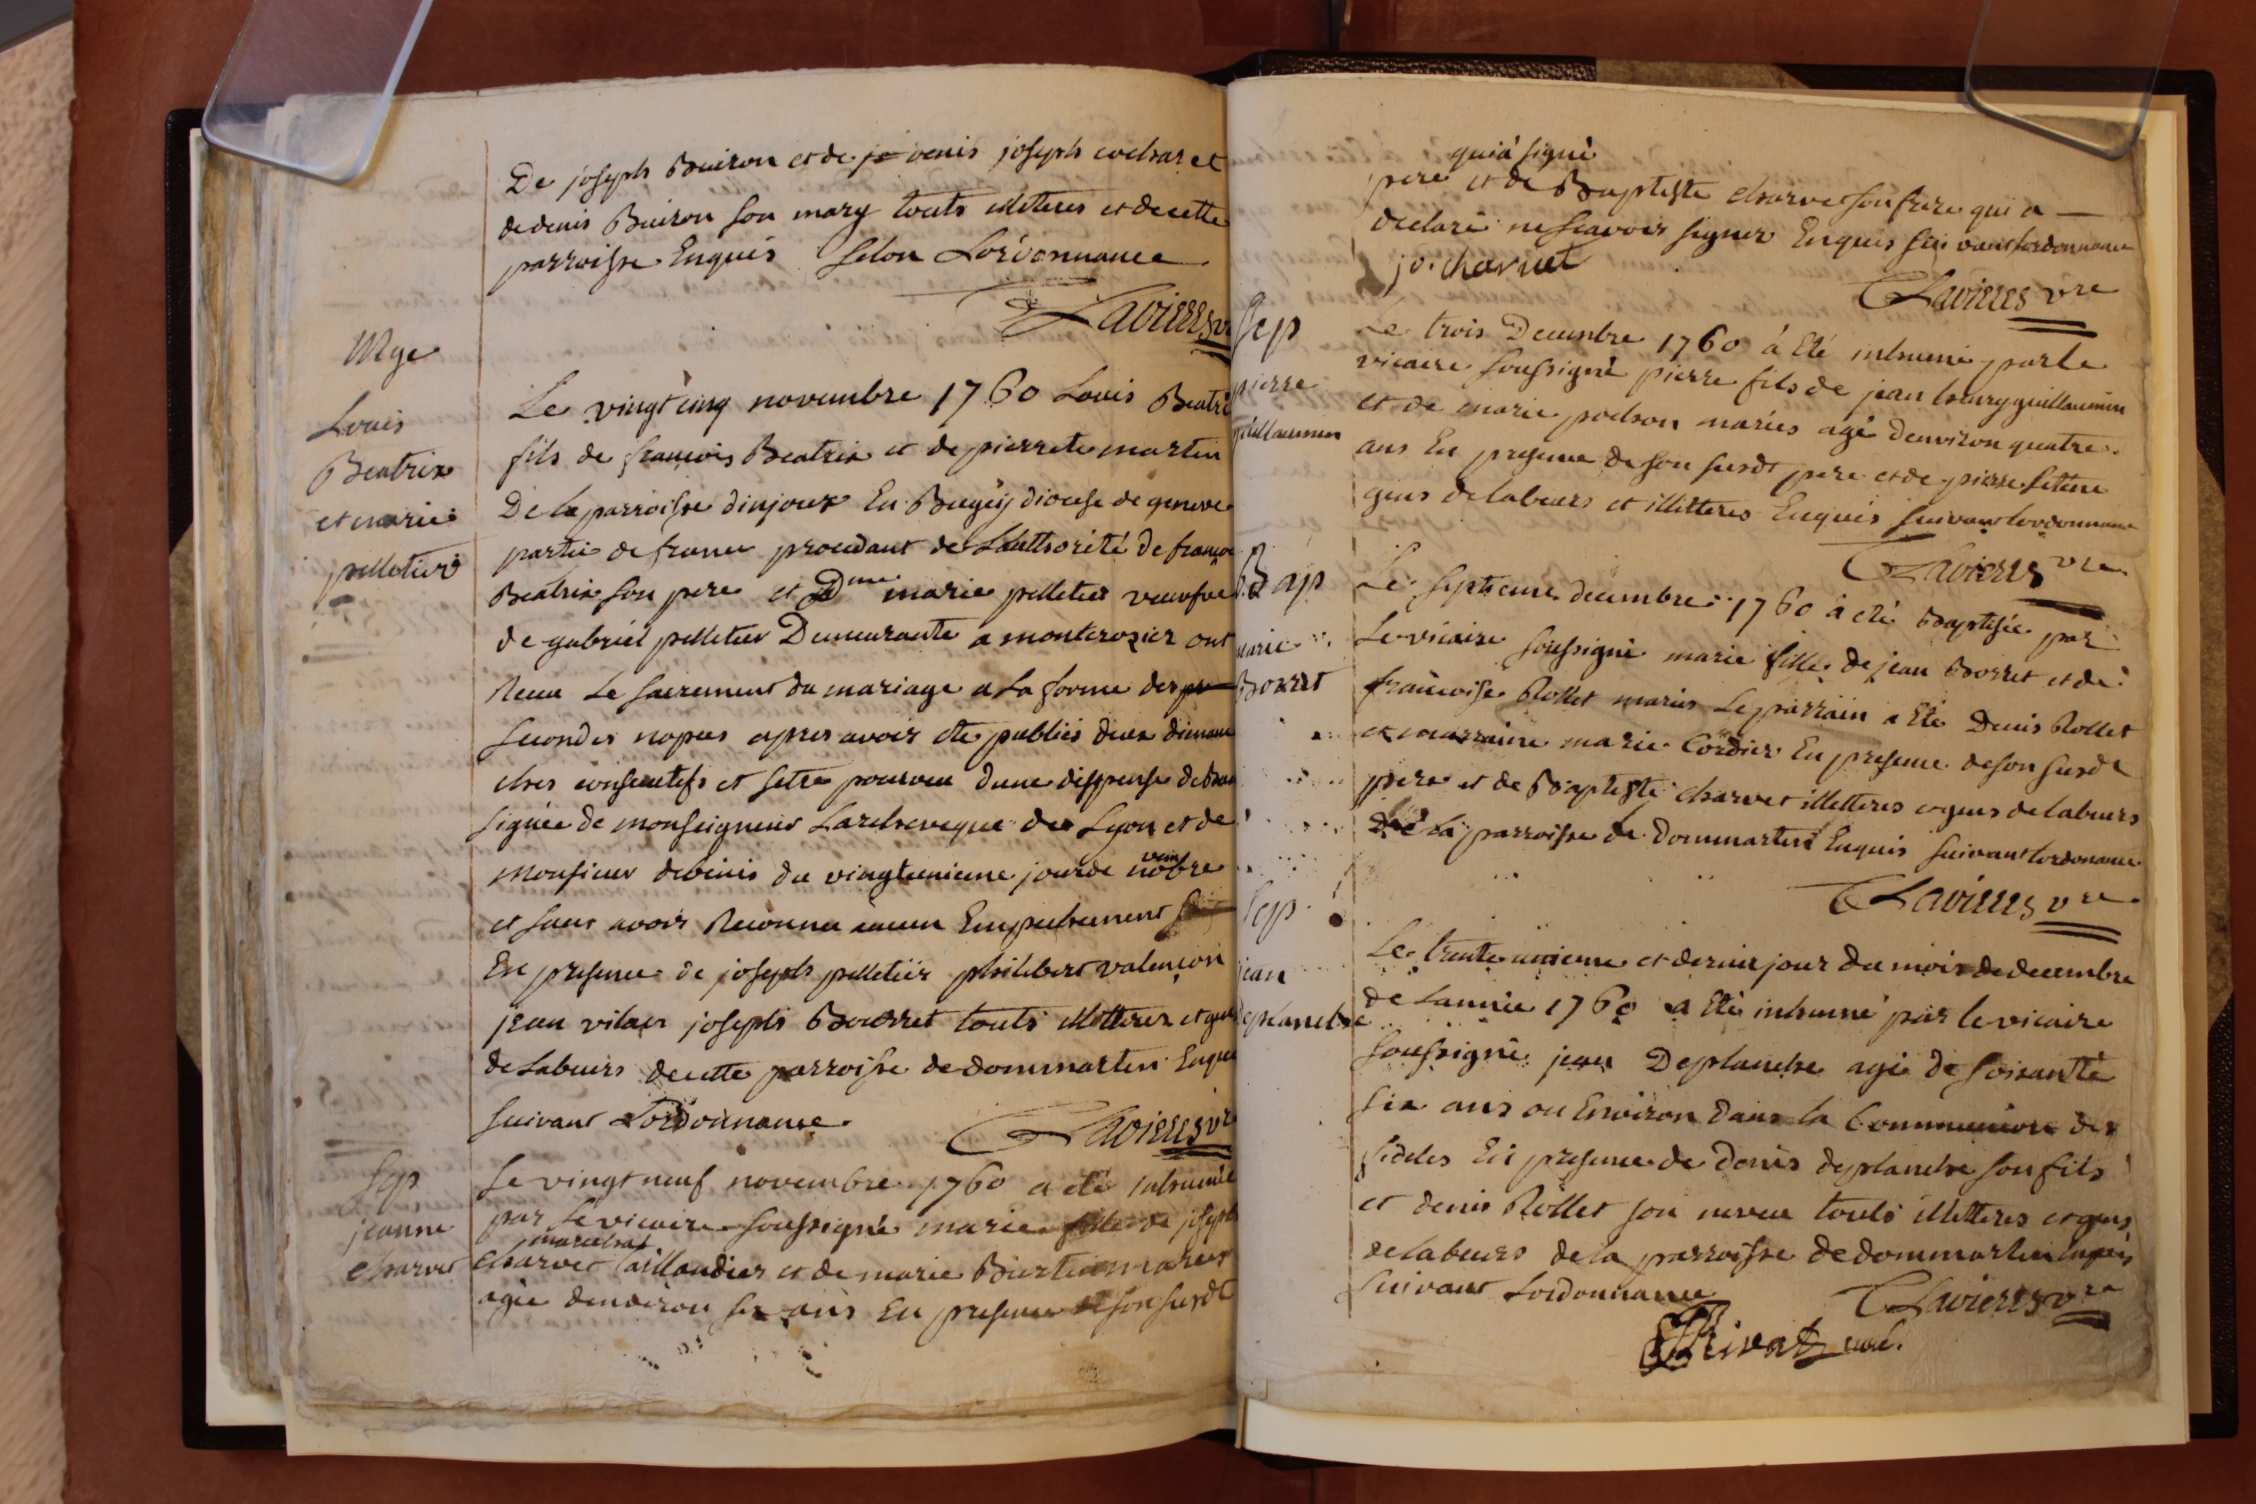 De joseph Buiron et de je venis joseph cochar et
de denis Buiron son mary touts illetteres et de cette
parroisse Enquis selon Lordonnance
Lavieres v
Mge
Louis
Beatrix
et marie
pelletier
Le vingt cinq novembre 1760 Louis Beatri
fils de francois Beatrix et de pierrete martin
De la parroisse dinjoux En Bugey diocese de geneve
partie de france procedant de Lauthorité de francoi
Beatrix son pere et Dme marie pelletier veuefve
de gabriel pelletier Demeurante a monterozier ont
Receu Le sacrement du mariage a La forme des
secondes nopces apres avoir ete publiés deux diman
ches consecutifs et setre pourveu dune dispense de ban
signée de monseigneur Larcheveque de Lyon et de
monsieur devinis du vingtunieme jour de novembre
et sans avoir Reconnu aucun Empechement
En presence de joseph pelletier philibert valencon
jean vilaer joseph Bourret touts illetteres et gens
de Labeurs de cette parroisse de dommartin Enquis
suivant Lordonnance
Lavieres vre
Sep
jeanne
charvet
Le vingt neuf novembre 1760 a eté inhumée
par Le vicaire soussigné marie fille de joseph
marechal
charvet taillandier et de marie Burtin mariés
agée denviron six ans En presence de son susdt
qui a signé
pere et de Baptiste charvet son frere qui a
declaré ne scavoir signer Enquis suivant lordonnance
jo. charvet
Lavieres vre
Sep
pierre
guillaumin
Le trois Decembre 1760 a Eté inhumé par Le
vicaire soussigné pierre fils de jean henry guillaumin
et de marie pochon mariés agé denviron quatre
ans En presence de son susdt pere et de pierre
gens de labeurs et illitteres Enquis suivant lordonnance
Lavieres vre
Bap
marie
Borret
Le septieme decembre 1760 a eté Baptisée par
Le vicaire soussigné marie fille de jean Borret et de
francoise Rollet mariés Le parrain a Eté Denis Rollet
et marraine marie Cordier En presence de son susdt
pere et de Baptiste charvet illetteres et gens de labeurs
de La parroisse de Dommartin Enquis suivant lordonance
Lavieres vre
Sep
jean
deplanche
Le trente unieme et dernier jour du mois de decembre
de Lannée 1760 a Eté inhumé par le vicaire
soussigné jean Deplanche agé de soixante
six ans ou Environ dans la Communion des
fideles En presence de denis deplanche son fils
et denis Rollet son neveu touts illetteres et gens
de labeurs de la parroisse de dommartin Enquis
suivant Lordonnance
Lavieres vre
Rivat curé.